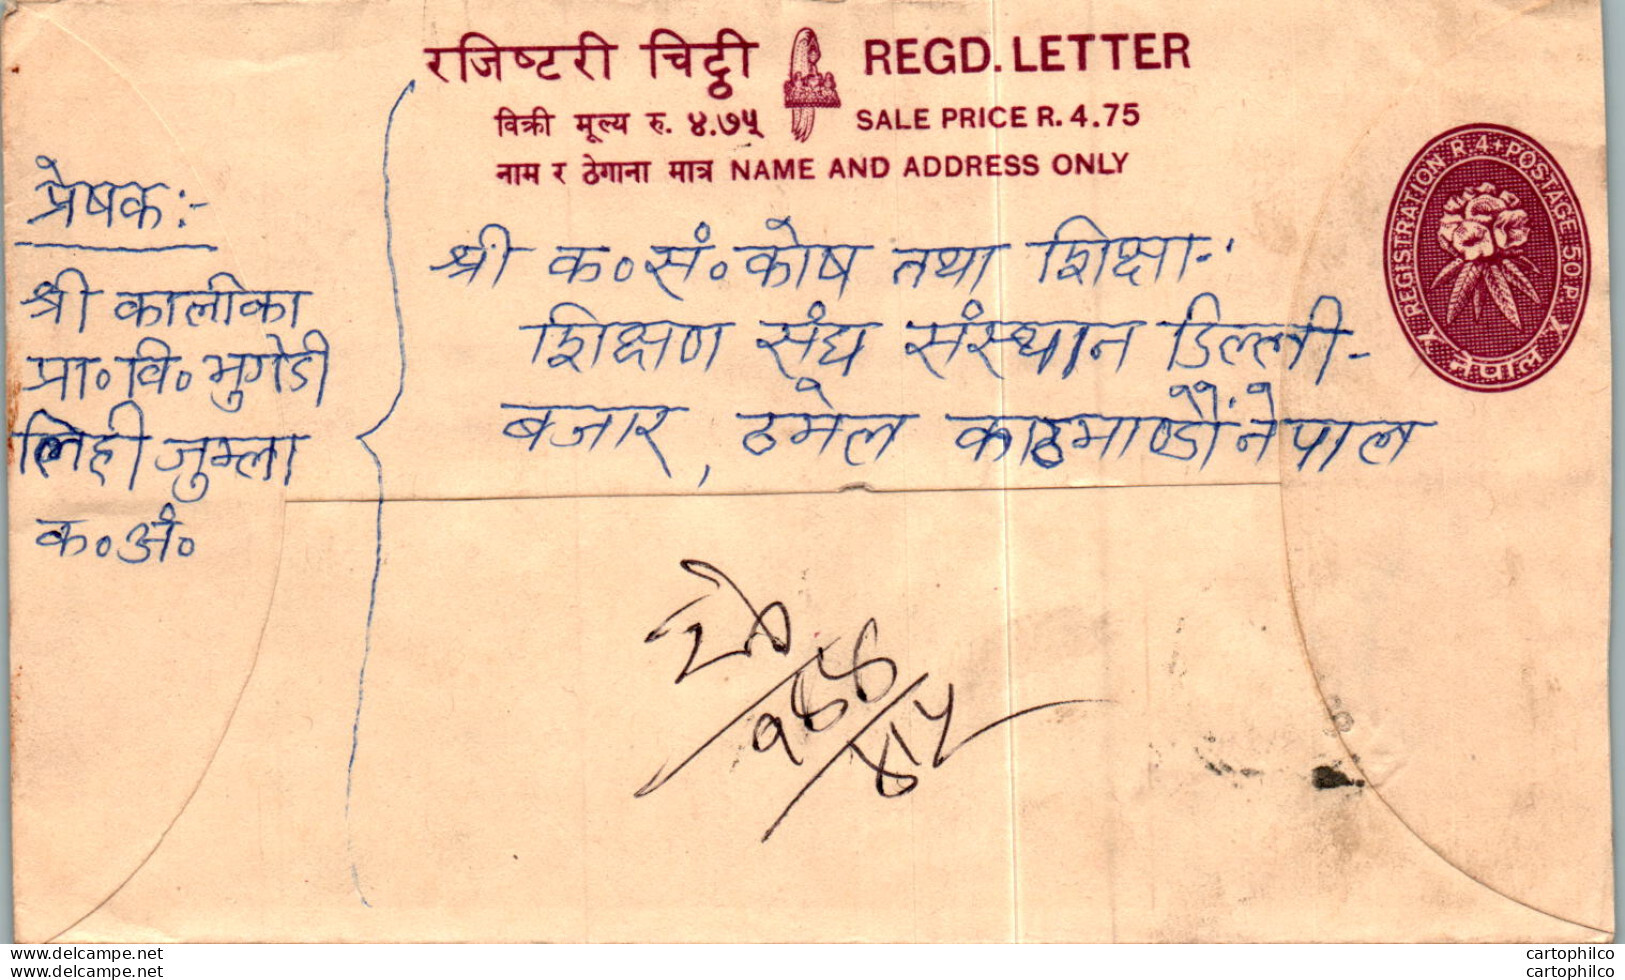 रजिष्टरी चिट्ठी REGD. LETTER
विक्री मूल्य रु. ४.७५ SALE PRICE R. 4.75
नाम र ठेगाना मात्र NAME AND ADDRESS ONLY
REGISTRATION R 4 + POSTAGE 50 P.
नेपाल
प्रेषक :-
श्री कालीका
प्रा॰ वि॰ भुगेडी
लिही जुम्ला
क॰ अं॰
श्री क॰ सं॰ कोष तथा शिक्षा-
शिक्षण संघ संस्थान डिल्ली-
बजार, ठमेल काठमाण्डौं नेपाल
cartophilco
cartophilco
cartophilco
cartophilco